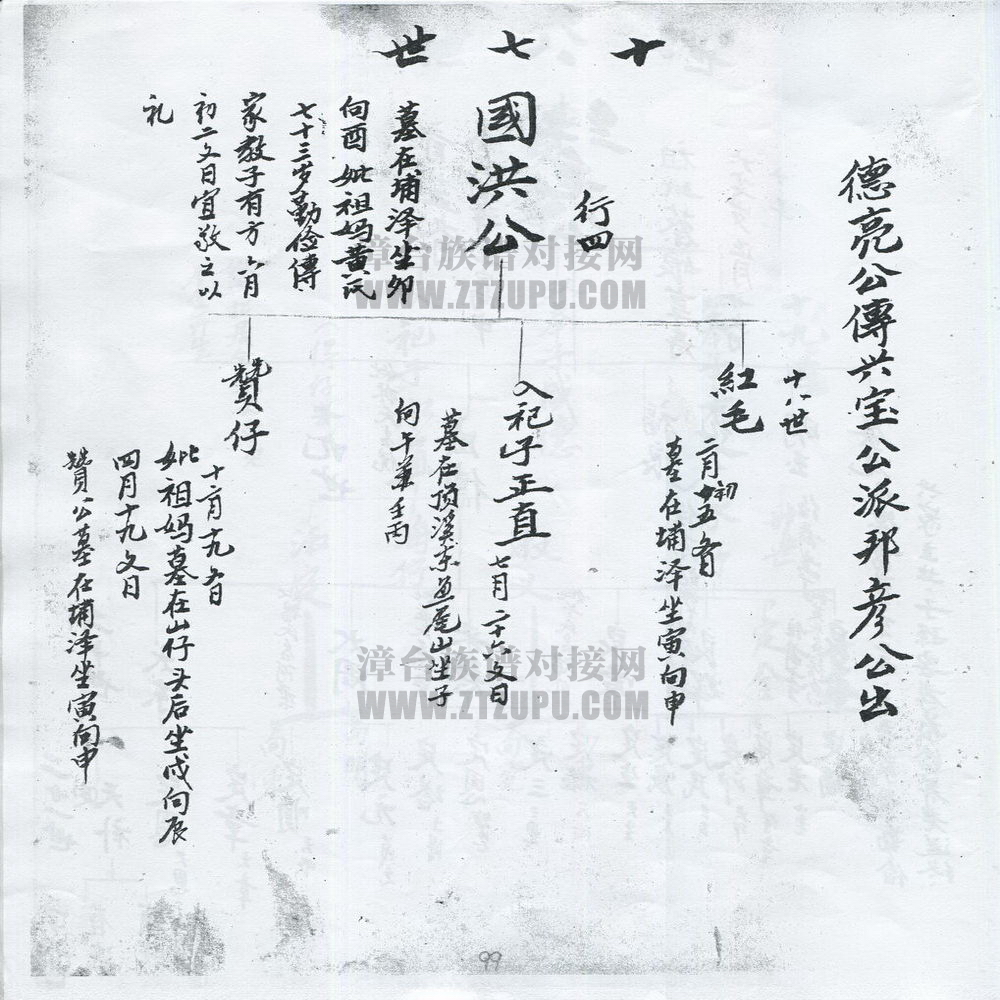 十七世
德亮公傳兴宝公派邦彦公出
行四
國洪公
墓在埔泽坐卯
向酉 妣祖妈黄氏
七十三岁勤俭傳
家教子有方 六月
初二文日宜敬之以
礼
十八世
紅毛
二月初十五
墓在埔泽坐寅向申
入祀子正直
七月二十六文日
墓在顶溪东 尾山坐子
向午兼壬丙
贊仔
十二月十九 日
妣祖妈墓在山仔头后坐戌向辰
四月十九文日
贊公墓在埔泽坐寅向申
漳台族谱对接网
WWW.ZTZUPU.COM
漳台族谱对接网
WWW.ZTZUPU.COM
99